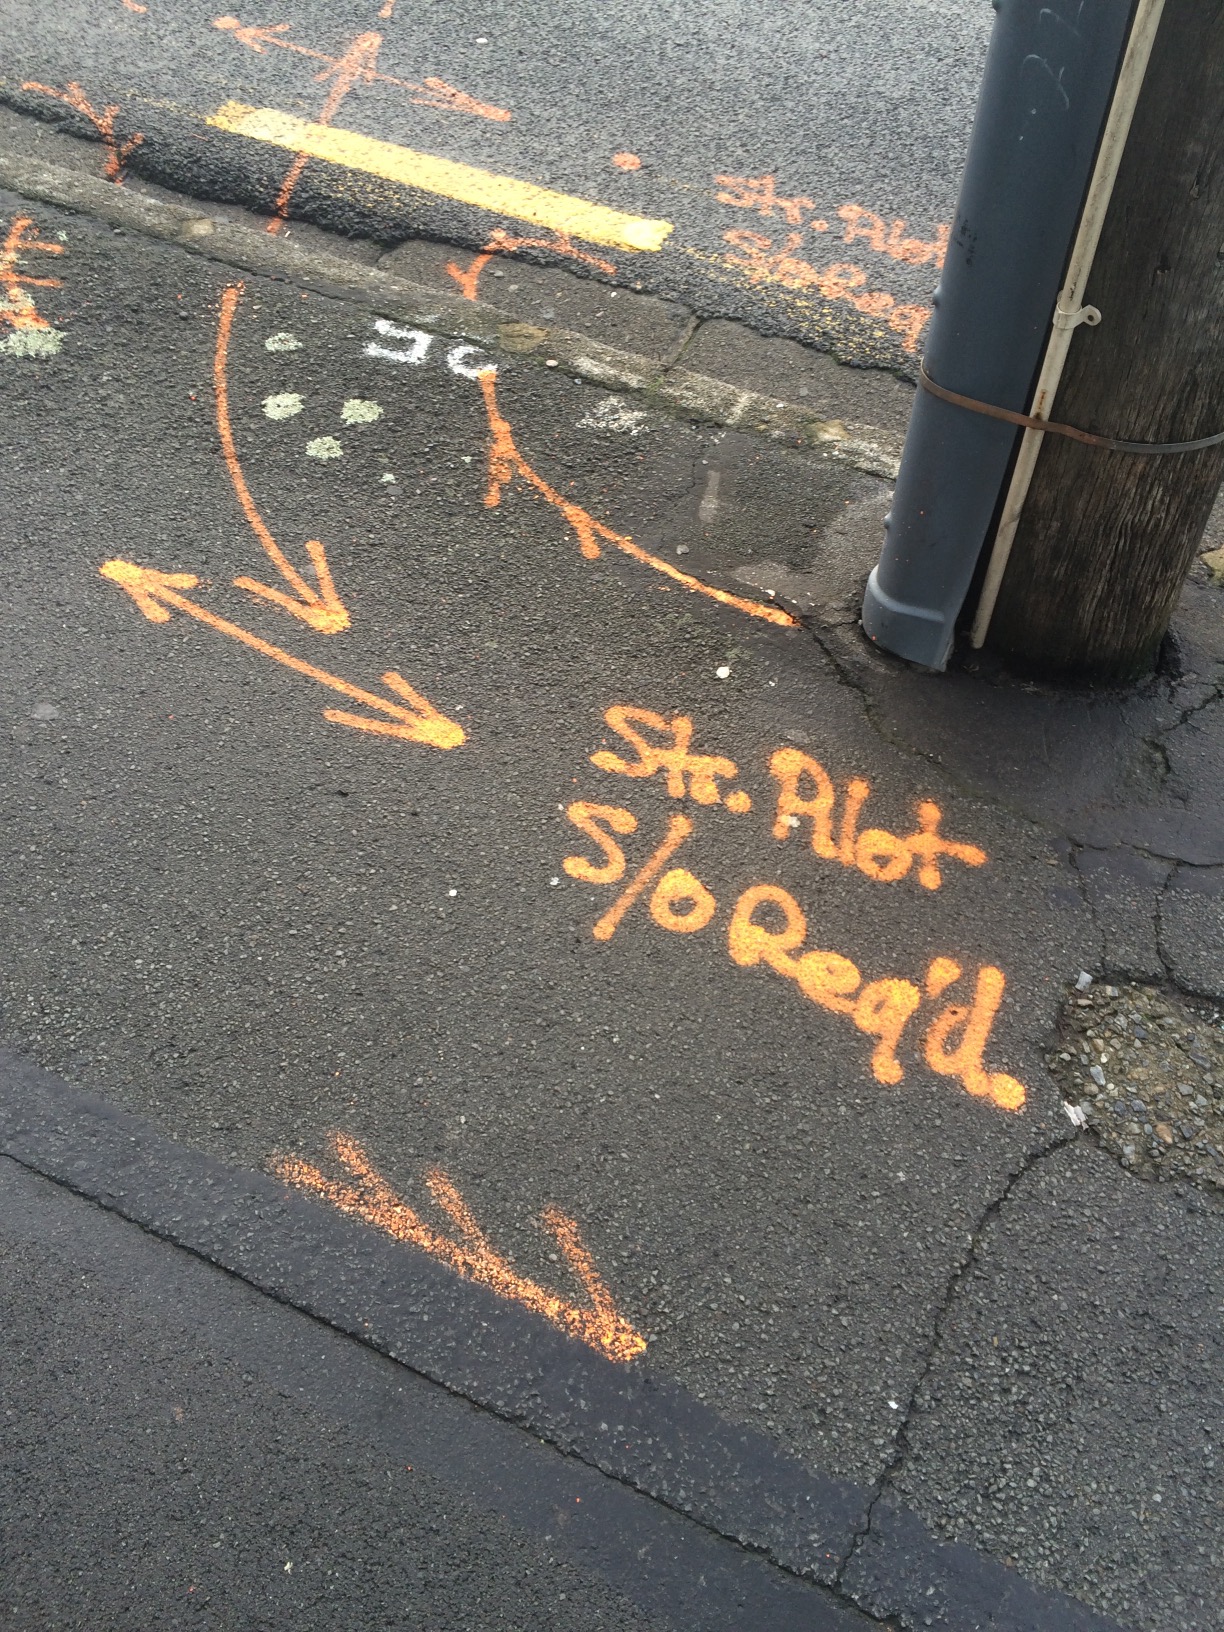 Str. Plot
S/o Req'd.
Str. Plot
S/o Req